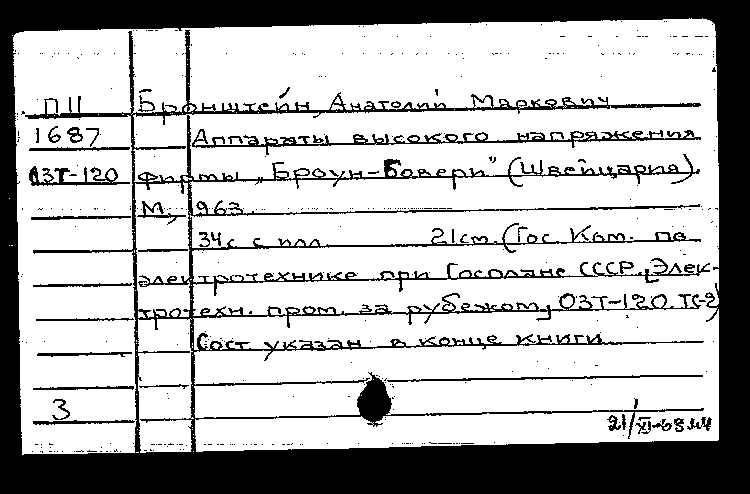 П11 Бронштейн, Анатолий Маркович
1687 Аппараты высокого напряжения
03Т-120 фирмы „Броун-Бовери" (Швейцария).
М., 1963.
34с с илл. 21см. (Гос. Ком. по
электротехнике при Госплане СССР. Элек-
тротехн. пром. за рубежом, 03Т-120. ТС-2)
Сост указан в конце книги
3
21/XI-68